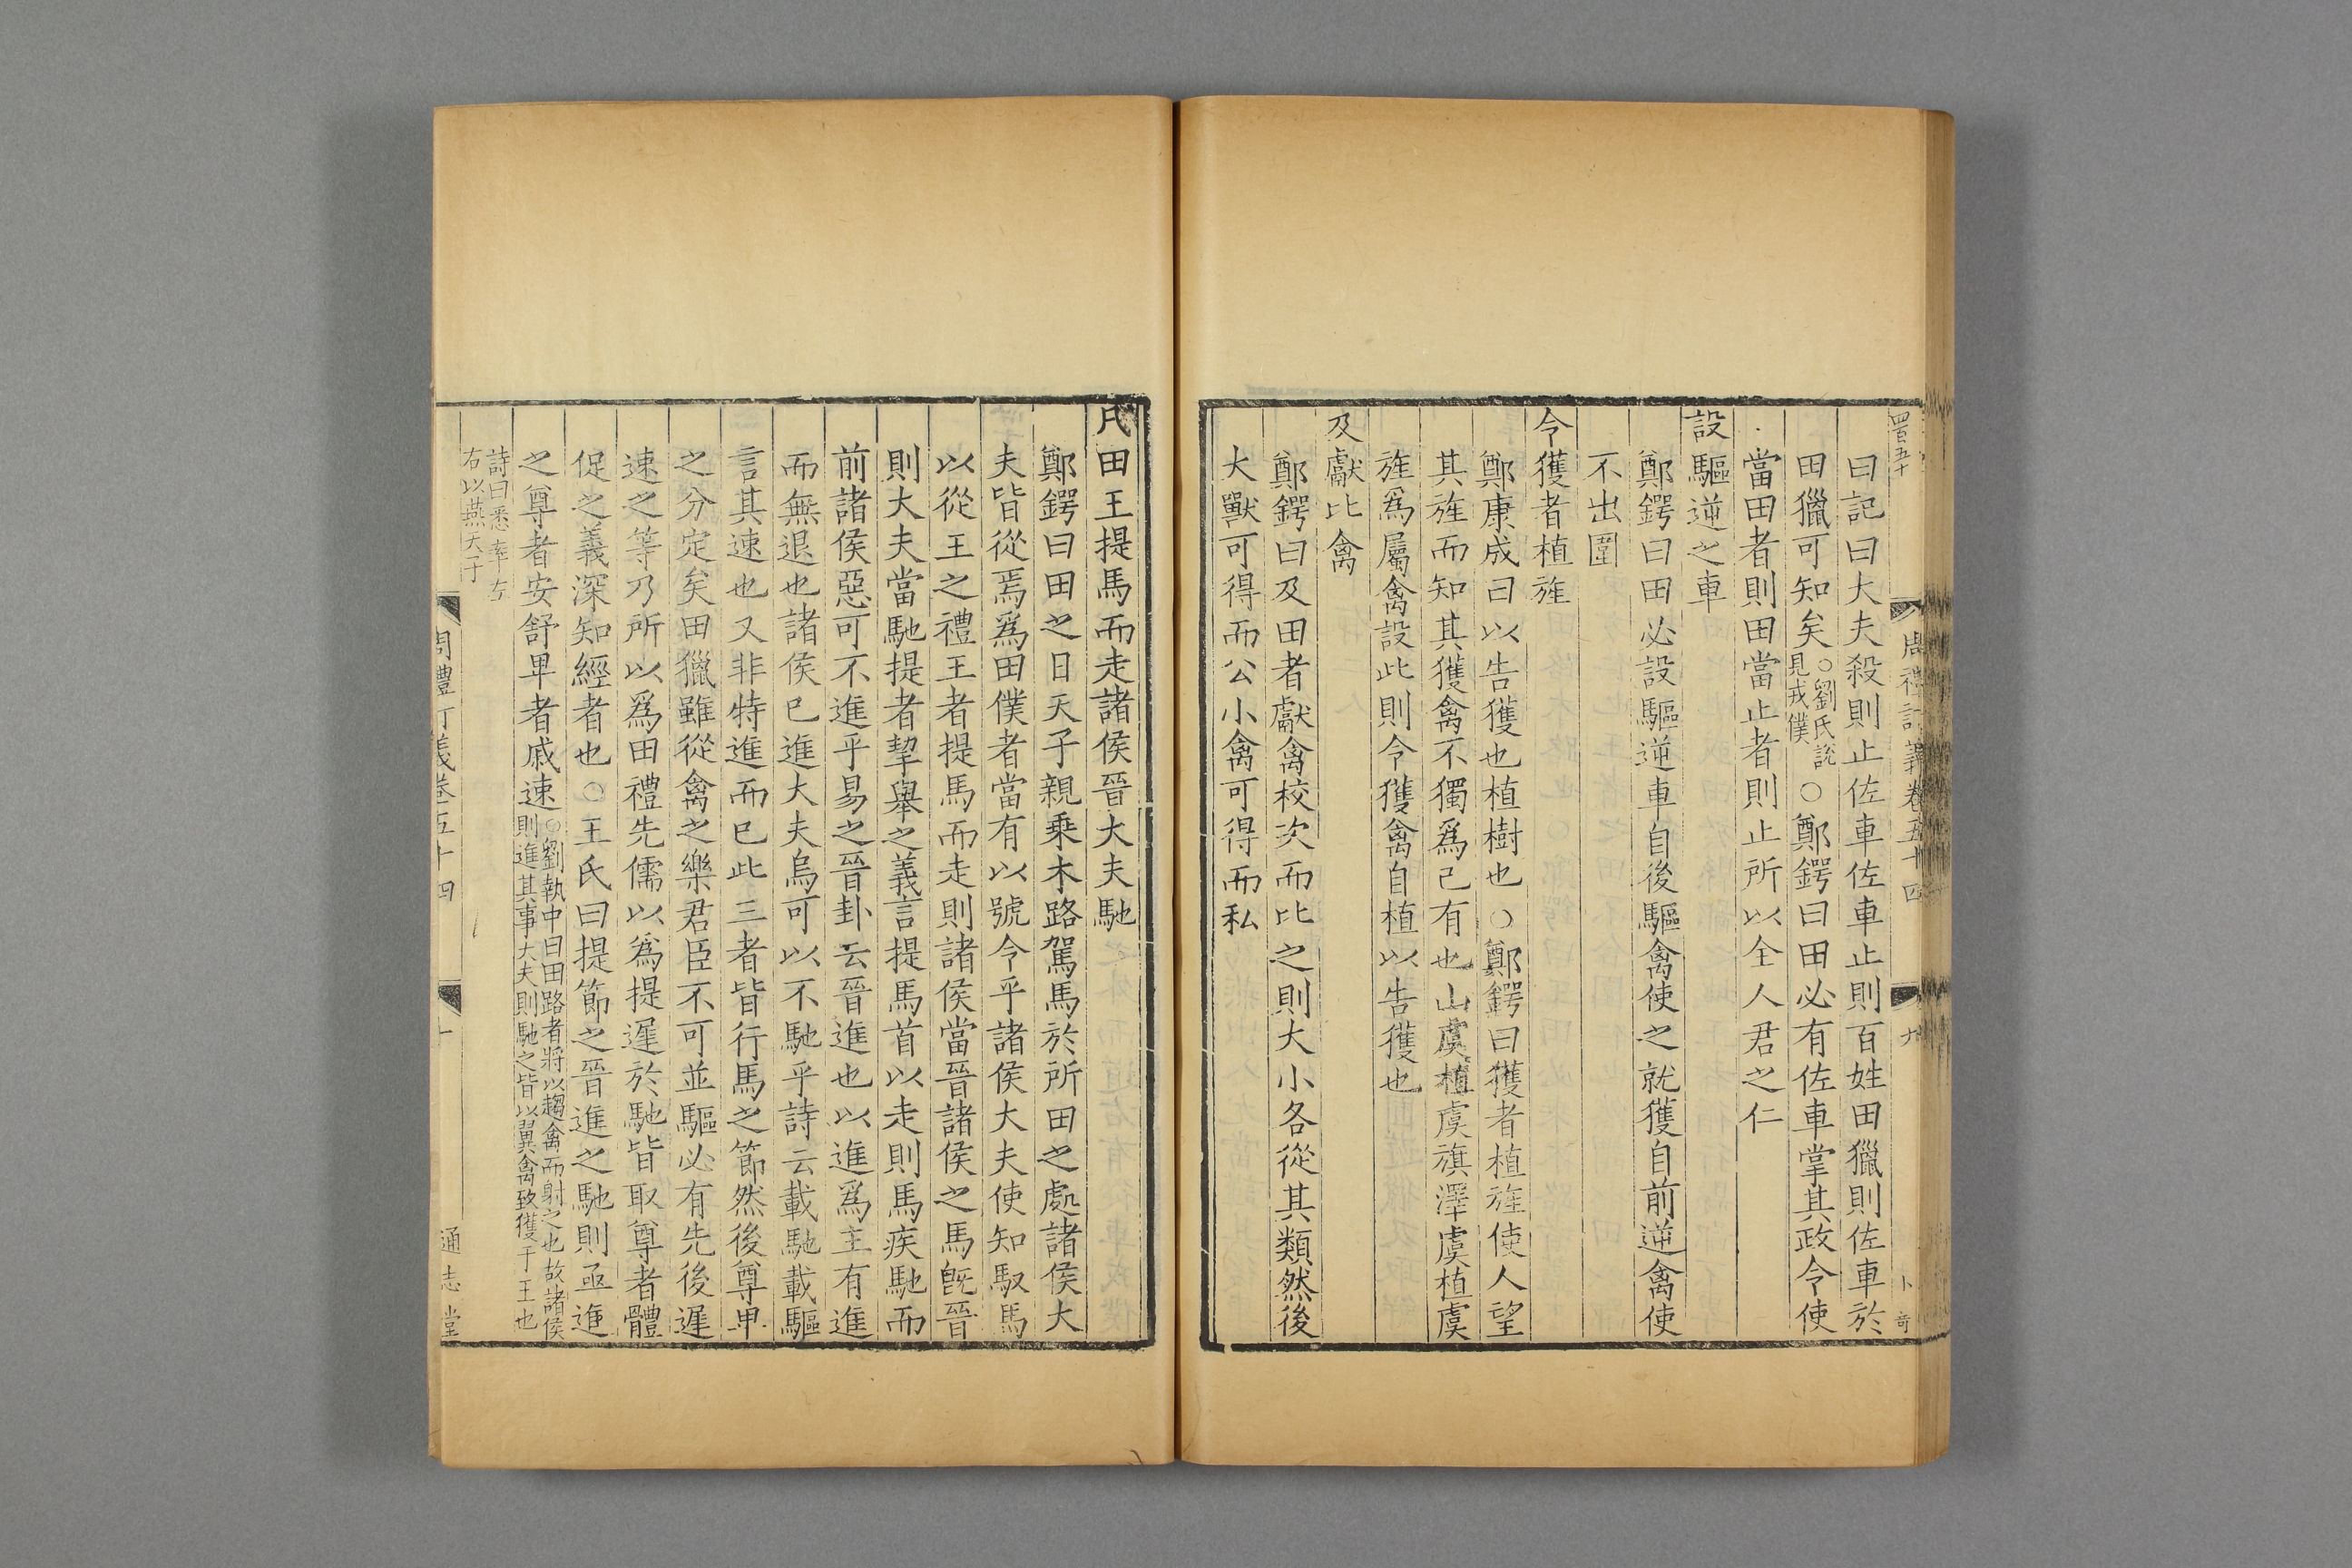 四百五十
周禮訂義卷五十四
九
卜 奇
曰記曰大夫殺則止佐車佐車止則百姓田獵則佐車於
田獵可知矣○劉氏說見戎僕○鄭鍔曰田必有佐車掌其政令使
當田者則田當止者則止所以全人君之仁
設驅逆之車
鄭鍔曰田必設驅逆車自後驅禽使之就獲自前逆禽使
不出圍
令獲者植旌
鄭康成曰以告獲也植樹也○鄭鍔曰獲者植旌使人望
其旌而知其獲禽不獨爲己有也山虞植虞旗澤虞植虞
旌爲屬禽設此則令獲禽自植以告獲也
及獻比禽
鄭鍔曰及田者獻禽校次而比之則大小各從其類然後
大獸可得而公小禽可得而私
凡田王提馬而走諸侯晉大夫馳
鄭鍔曰田之日天子親乘木路駕馬於所田之處諸侯大
夫皆從焉爲田僕者當有以號令乎諸侯大夫使知馭馬
以從王之禮王者提馬而走則諸侯當晉諸侯之馬旣晉
則大夫當馳提者挈舉之義言提馬首以走則馬疾馳而
前諸侯惡可不進乎易之晉卦云晉進也以進爲主有進
而無退也諸侯已進大夫烏可以不馳乎詩云載馳載驅
言其速也又非特進而已此三者皆行馬之節然後尊卑
之分定矣田獵雖從禽之樂君臣不可並驅必有先後遲
速之等乃所以爲田禮先儒以爲提遲於馳皆取尊者體
促之義深知經者也○王氏曰提節之晉進之馳則亟進
之尊者安舒卑者戚速○劉執中曰田路者將以趨禽而射之也故諸侯
則進其事大夫則馳之皆以翼禽致獲于王也
詩曰悉率左
右以燕天子
周禮訂義卷五十四
十
通志堂